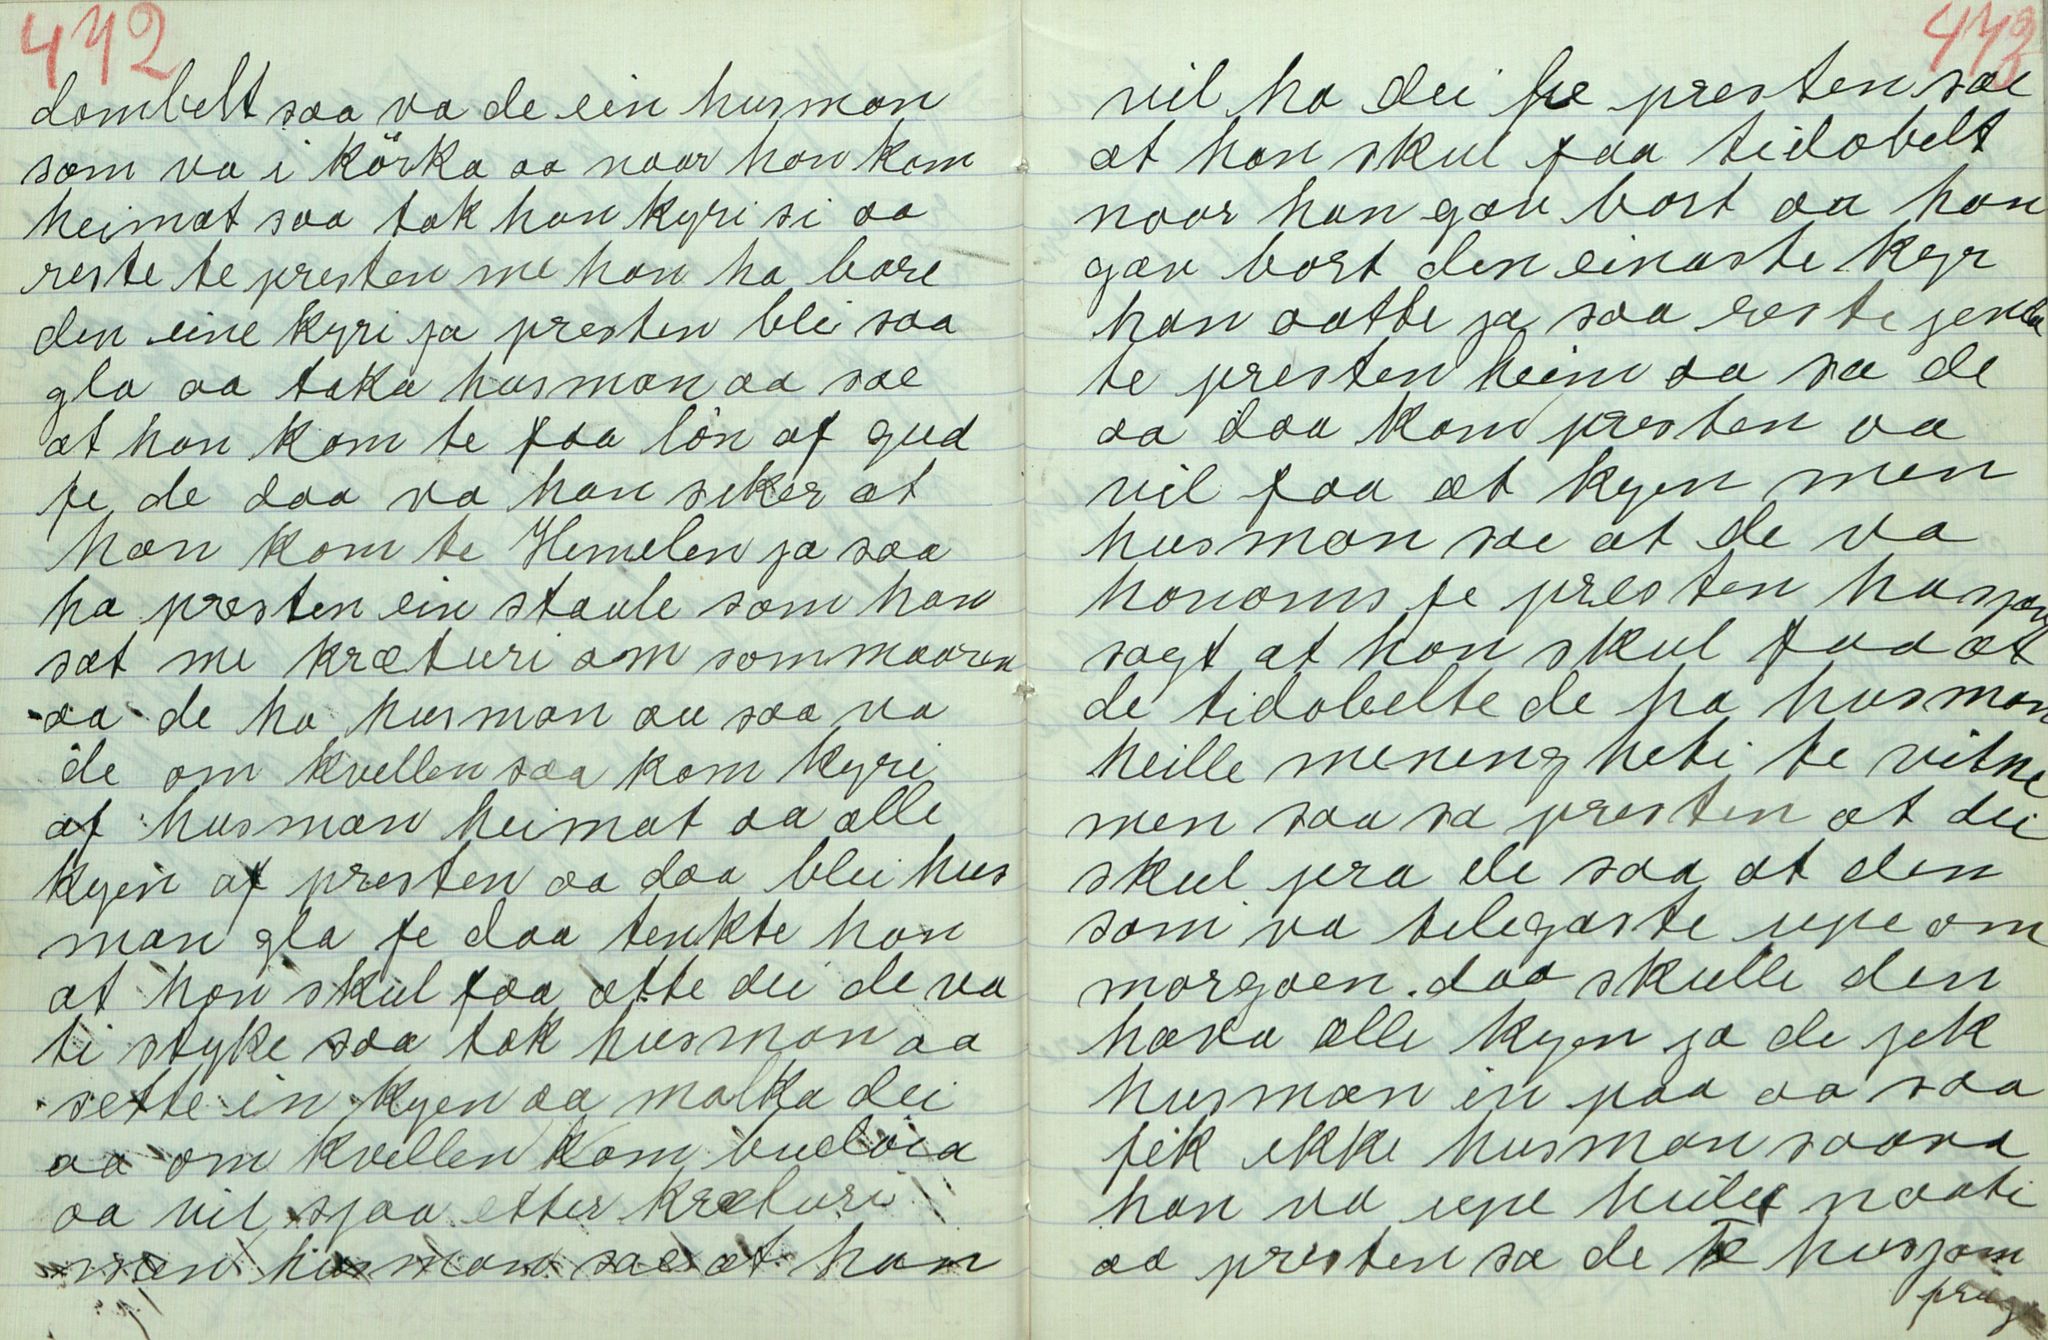 472
dombelt saa va de ein husman
som va i körka aa naar han kom
heimat saa tok han kyri si aa
reste te presten me han ha bare
den eine kyri ja presten blei saa
gla aa taka husman aa sae
at han kom te faa lön af gud
fe de daa va han siker at
han kom te Hemelen ja saa
ha presten ein staule som han
sat me kræturi om sommaaren
aa de ha husman au saa va
de om kvellen saa kom kyri
af husman heimat aa alle
kyen af presten aa daa blei hus
man gla fe daa tenkte han
at han skul faa atte dei de va
ti styke saa tok husman aa
sette in kyen aa malka dei
aa om kvellen kom budeia
aa vil sjaa etter kræturi
men husman sae at han
473
vil ha dei fe presten sae
at han skul faa tidobelt
naar han gav bort aa han
gav bort den einaste kyr
han aatte ja saa reste jenta
te presten heim aa sa de
aa daa kom presten aa
vil faa at kyen men
husman sae at de va
honoms fe presten ha
sagt at han skul faa at
de tidobelte de ha husman
heille menengheti te vitne
men saa sa presten at dei
skul pra de saa at den
som va telegaste upe om
morgaen. daa skulle den
hava alle kyen ja de jek
husman in paa aa saa
fik ikke husman saava
han va upe heile naati
aa presten sa de Te husjom